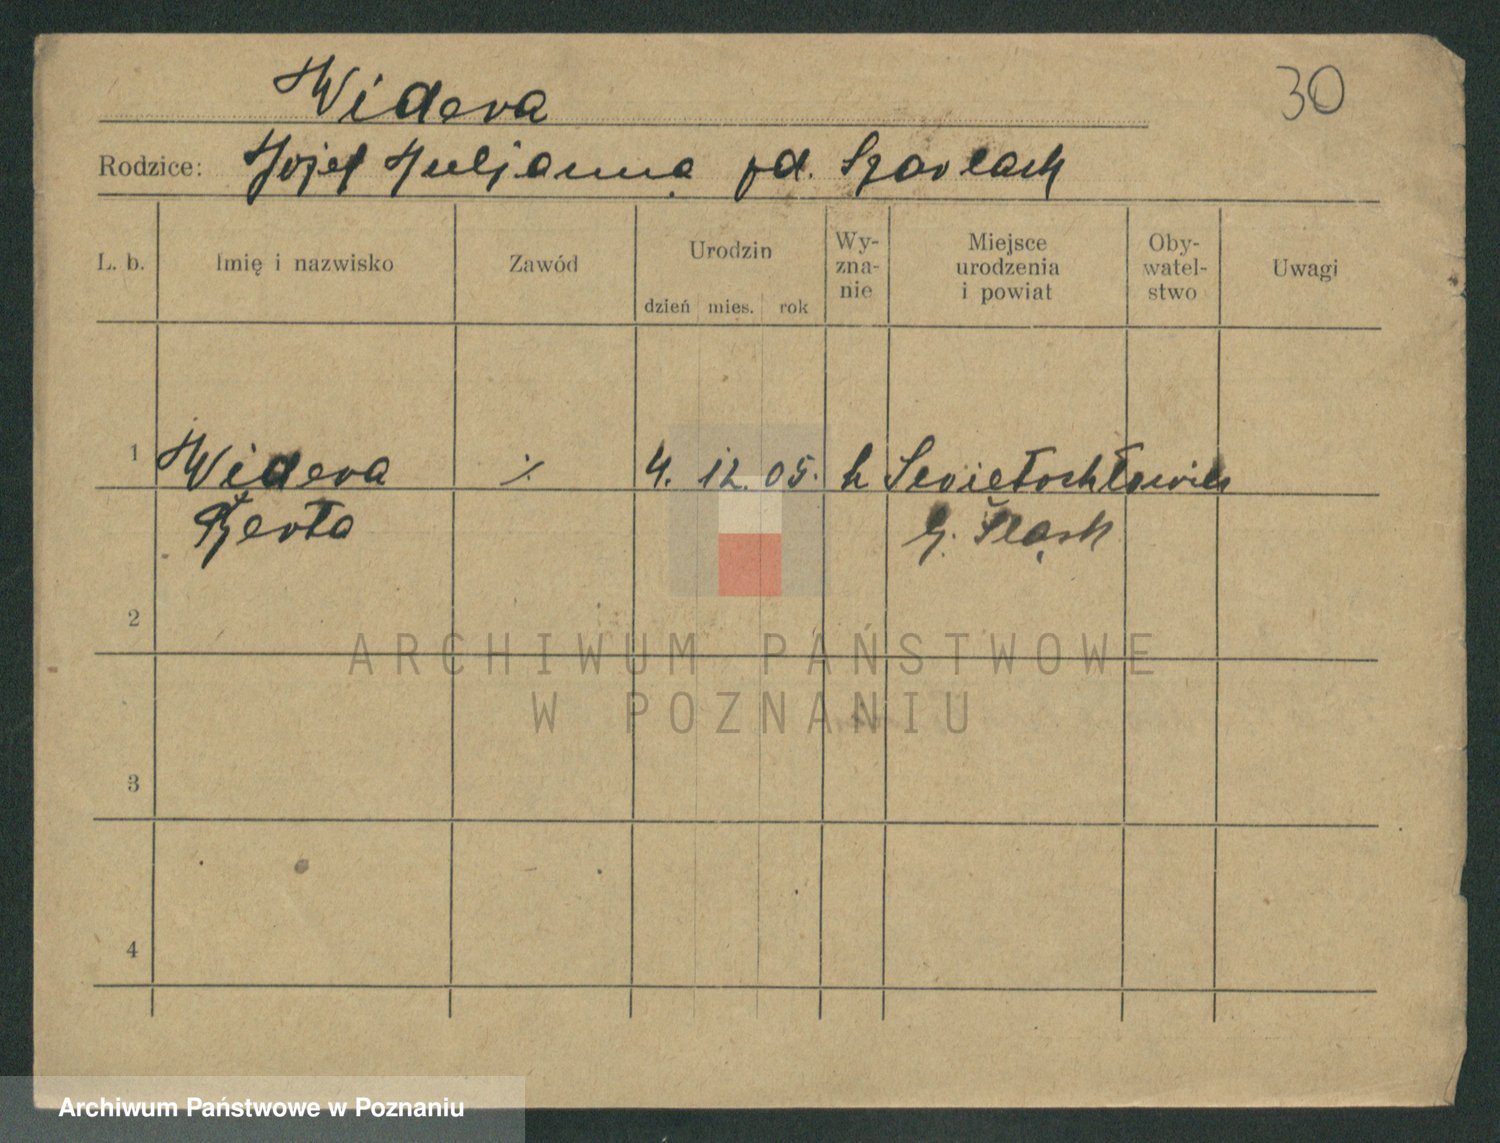 Widera
30
Rodzice: Józef Juljanna zd. Szorlach
L. b. Imię i nazwisko Zawód Urodzin dzień mies. rok Wy-zna-nie Miejsce urodzenia i powiat Oby-watel-stwo Uwagi
1 Widera ·/. 4. 12. 05. k Świetochłowice
Berta G. Śląsk
2
3
4
ARCHIWUM PAŃSTWOWE
W POZNANIU
Archiwum Państwowe w Poznaniu